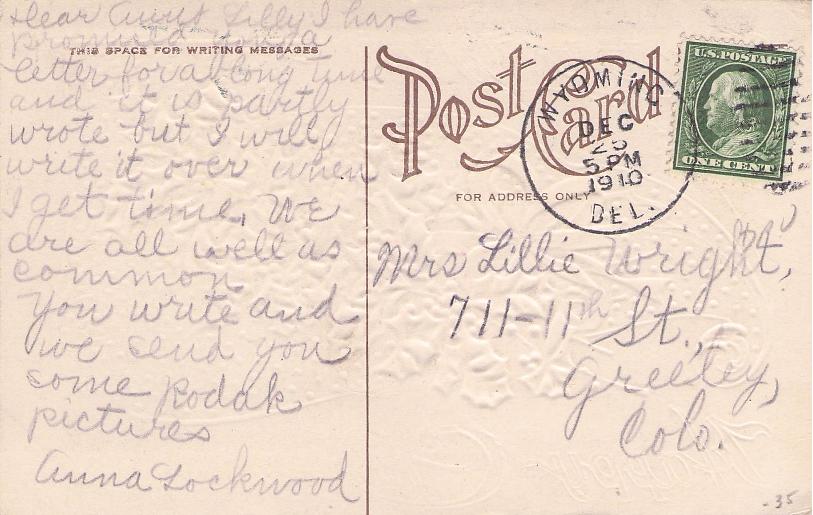 Dear Aunt Lilly I have
promised you a
THIS SPACE FOR WRITING MESSAGES
letter for a long time
and it is partly
wrote but I will
write it over when
I get time, We
are all well as
common
You write and
we send you
some kodak
pictures
Anna Lockwood
Post Card
FOR ADDRESS ONLY
WYOMING
DEC
5 PM
1910
DEL.
U.S. POSTAGE
ONE CENT
Mrs Lillie Wright,
711-11th St.,
Greeley,
Colo.
-35